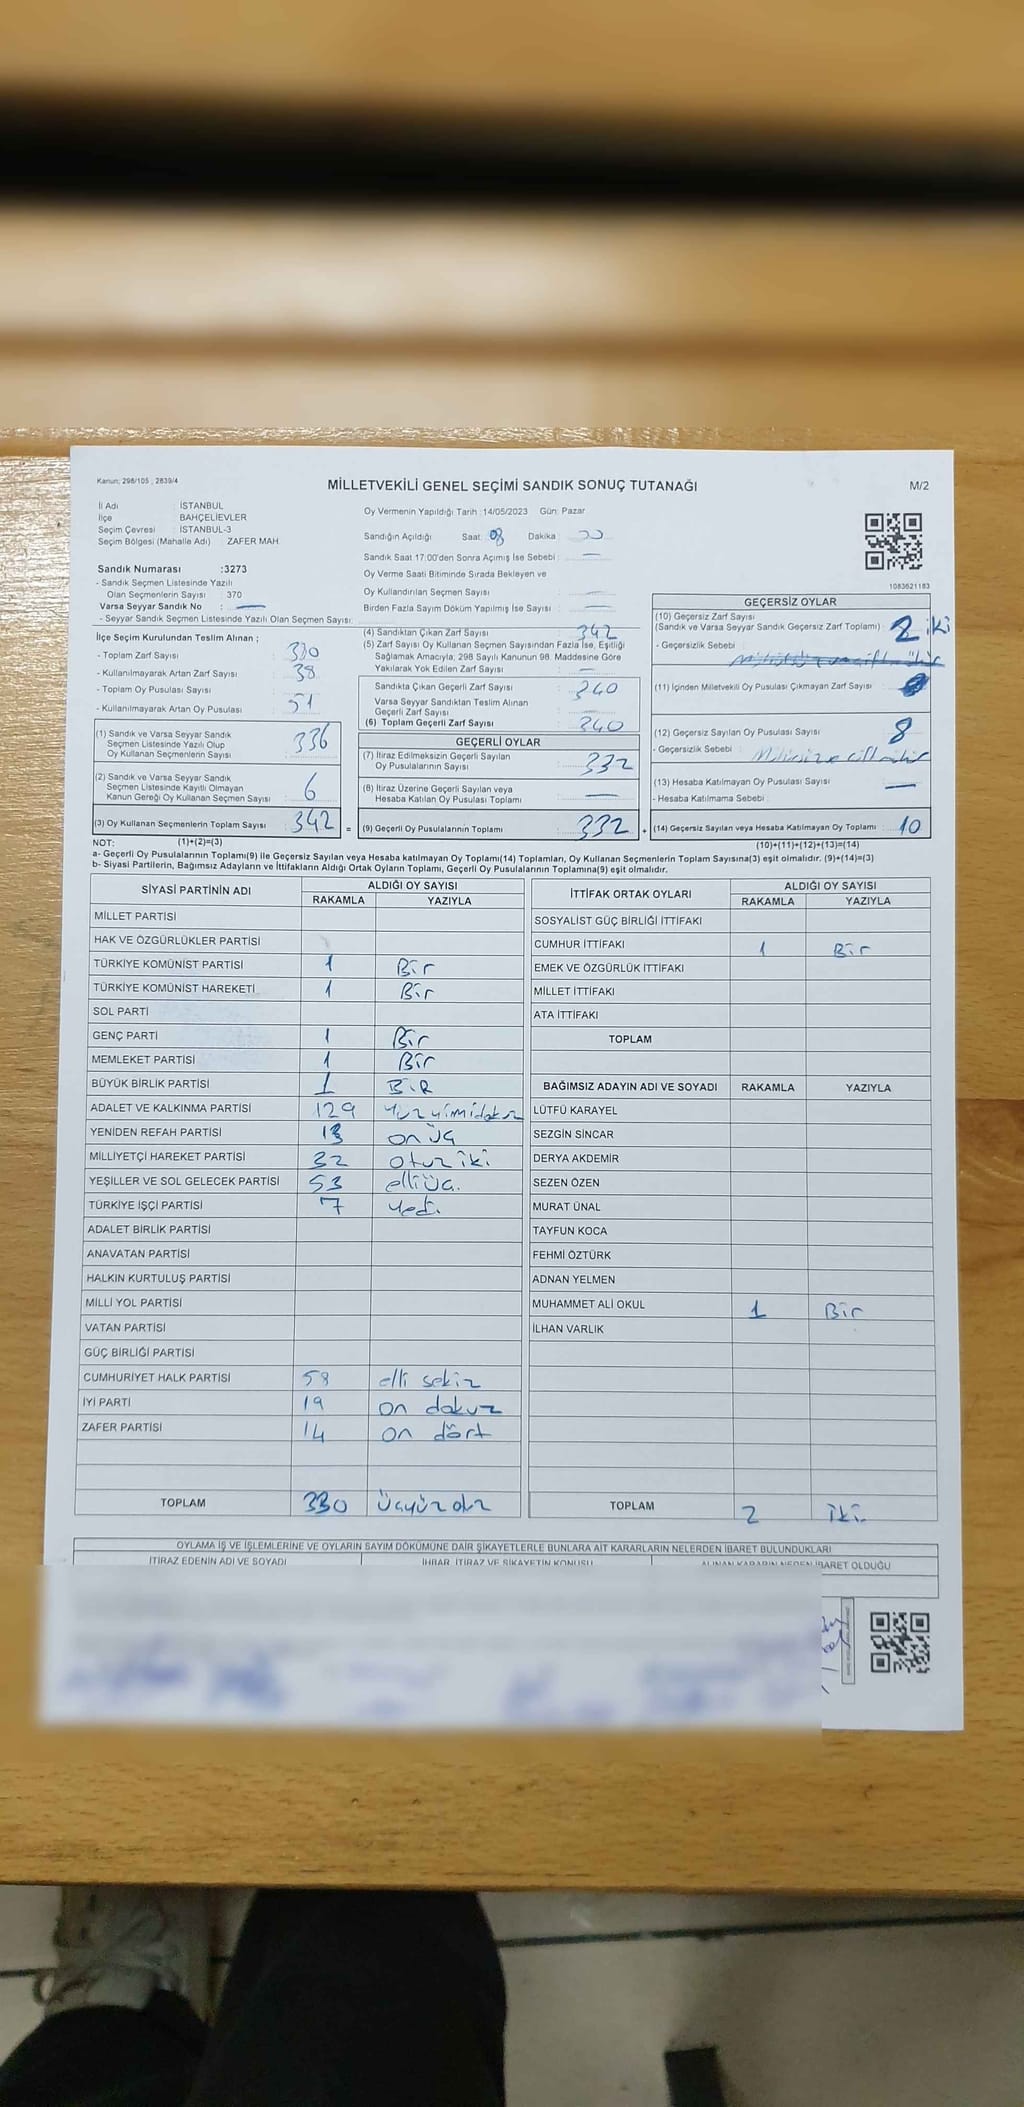 Kanun; 298/105 , 2839/4
MİLLETVEKİLİ GENEL SEÇİMİ SANDIK SONUÇ TUTANAĞI
M/2
İl Adı : İSTANBUL
İlçe BAHÇELİEVLER
Seçim Çevresi : İSTANBUL-3
Seçim Bölgesi (Mahalle Adı) ZAFER MAH
Oy Vermenin Yapıldığı Tarih :14/05/2023 Gün: Pazar
Sandığın Açıldığı Saat: 08 Dakika
Sandık Saat 17:00'den Sonra Açımış İse Sebebi : —
Oy Verme Saati Bitiminde Sırada Bekleyen ve
Oy Kullandırılan Seçmen Sayısı —
Birden Fazla Sayım Döküm Yapılmış İse Sayısı : —
1083621183
Sandık Numarası :3273
- Sandık Seçmen Listesinde Yazılı
Olan Seçmenlerin Sayısı : 370
Varsa Seyyar Sandık No : —
- Seyyar Sandık Seçmen Listesinde Yazılı Olan Seçmen Sayısı:
İlçe Seçim Kurulundan Teslim Alınan ;
- Toplam Zarf Sayısı : 380
- Kullanılmayarak Artan Zarf Sayısı : 38
- Toplam Oy Pusulası Sayısı
- Kullanılmayarak Artan Oy Pusulası : 51
(1) Sandık ve Varsa Seyyar Sandık
Seçmen Listesinde Yazılı Olup
Oy Kullanan Seçmenlerin Sayısı : 336
(2) Sandık ve Varsa Seyyar Sandık
Seçmen Listesinde Kayıtlı Olmayan
Kanun Gereği Oy Kullanan Seçmen Sayısı : 6
(3) Oy Kullanan Seçmenlerin Toplam Sayısı : 342 =
(4) Sandıktan Çıkan Zarf Sayısı : 342
(5) Zarf Sayısı Oy Kullanan Seçmen Sayısından Fazla İse, Eşitliği
Sağlamak Amacıyla; 298 Sayılı Kanunun 98. Maddesine Göre
Yakılarak Yok Edilen Zarf Sayısı : —
Sandıkta Çıkan Geçerli Zarf Sayısı : 340
Varsa Seyyar Sandıktan Teslim Alınan
Geçerli Zarf Sayısı
(6) Toplam Geçerli Zarf Sayısı : 340
GEÇERLİ OYLAR
(7) İtiraz Edilmeksizin Geçerli Sayılan
Oy Pusulalarının Sayısı : 332
(8) İtiraz Üzerine Geçerli Sayılan veya
Hesaba Katılan Oy Pusulası Toplamı : —
(9) Geçerli Oy Pusulalarının Toplamı : 332 +
GEÇERSİZ OYLAR
(10) Geçersiz Zarf Sayısı
(Sandık ve Varsa Seyyar Sandık Geçersiz Zarf Toplamı) : 2 iki
- Geçersizlik Sebebi :
(11) İçinden Milletvekili Oy Pusulası Çıkmayan Zarf Sayısı :
(12) Geçersiz Sayılan Oy Pusulası Sayısı : 8
- Geçersizlik Sebebi :
(13) Hesaba Katılmayan Oy Pusulası Sayısı : —
- Hesaba Katılmama Sebebi :
(14) Geçersiz Sayılan veya Hesaba Katılmayan Oy Toplamı : 10
NOT: (1)+(2)=(3) (10)+(11)+(12)+(13)=(14)
a- Geçerli Oy Pusulalarının Toplamı(9) ile Geçersiz Sayılan veya Hesaba katılmayan Oy Toplamı(14) Toplamları, Oy Kullanan Seçmenlerin Toplam Sayısına(3) eşit olmalıdır. (9)+(14)=(3)
b- Siyasi Partilerin, Bağımsız Adayların ve İttifakların Aldığı Ortak Oyların Toplamı, Geçerli Oy Pusulalarının Toplamına(9) eşit olmalıdır.
SİYASİ PARTİNİN ADI ALDIĞI OY SAYISI
RAKAMLA YAZIYLA
MİLLET PARTİSİ
HAK VE ÖZGÜRLÜKLER PARTİSİ
TÜRKİYE KOMÜNİST PARTİSİ 1 Bir
TÜRKİYE KOMÜNİST HAREKETİ 1 Bir
SOL PARTİ
GENÇ PARTİ 1 Bir
MEMLEKET PARTİSİ 1 Bir
BÜYÜK BİRLİK PARTİSİ 1 BiR
ADALET VE KALKINMA PARTİSİ 129 yüzyirmidokuz
YENİDEN REFAH PARTİSİ 13 on üç
MİLLİYETÇİ HAREKET PARTİSİ 32 otuz iki
YEŞİLLER VE SOL GELECEK PARTİSİ 53 elli üç.
TÜRKİYE İŞÇİ PARTİSİ 7 yedi
ADALET BİRLİK PARTİSİ
ANAVATAN PARTİSİ
HALKIN KURTULUŞ PARTİSİ
MİLLİ YOL PARTİSİ
VATAN PARTİSİ
GÜÇ BİRLİĞİ PARTİSİ
CUMHURİYET HALK PARTİSİ 58 elli sekiz
İYİ PARTİ 19 on dokuz
ZAFER PARTİSİ 14 on dört
TOPLAM 330 üçyüz otuz
İTTİFAK ORTAK OYLARI ALDIĞI OY SAYISI
RAKAMLA YAZIYLA
SOSYALİST GÜÇ BİRLİĞİ İTTİFAKI
CUMHUR İTTİFAKI 1 Bir
EMEK VE ÖZGÜRLÜK İTTİFAKI
MİLLET İTTİFAKI
ATA İTTİFAKI
TOPLAM
BAĞIMSIZ ADAYIN ADI VE SOYADI RAKAMLA YAZIYLA
LÜTFÜ KARAYEL
SEZGİN SİNCAR
DERYA AKDEMİR
SEZEN ÖZEN
MURAT ÜNAL
TAYFUN KOCA
FEHMİ ÖZTÜRK
ADNAN YELMEN
MUHAMMET ALİ OKUL 1 Bir
İLHAN VARLIK
TOPLAM 2 iki
OYLAMA İŞ VE İŞLEMLERİNE VE OYLARIN SAYIM DÖKÜMÜNE DAİR ŞİKAYETLERLE BUNLARA AİT KARARLARIN NELERDEN İBARET BULUNDUKLARI
İTİRAZ EDENİN ADI VE SOYADI İHBAR, İTİRAZ VE ŞİKAYETİN KONUSU ALINAN KARARIN NEDEN İBARET OLDUĞU